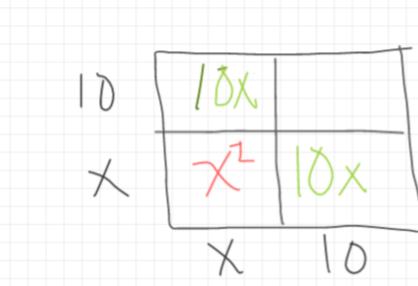 10 10x
x x² 10x
x 10